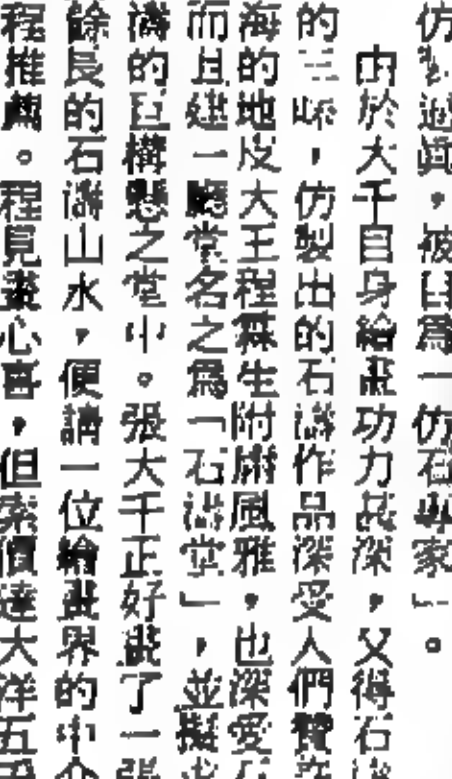 仿多逼真，被目為一仿石專家」。
由於大千自身繪畫功力甚深，父得石濤
的三昧，仿製出的石濤作品深受人們贊許
海的地皮大王程霖生附庸風雅，也深愛石
而且建一廳堂名之為「石濤堂」，並擬求
濤的巨構懸之堂中。張大千正好做了一張
餘長的石濤山水，便請一位繪畫界的中介
程推薦。程見畫心喜，但索價達大洋五千